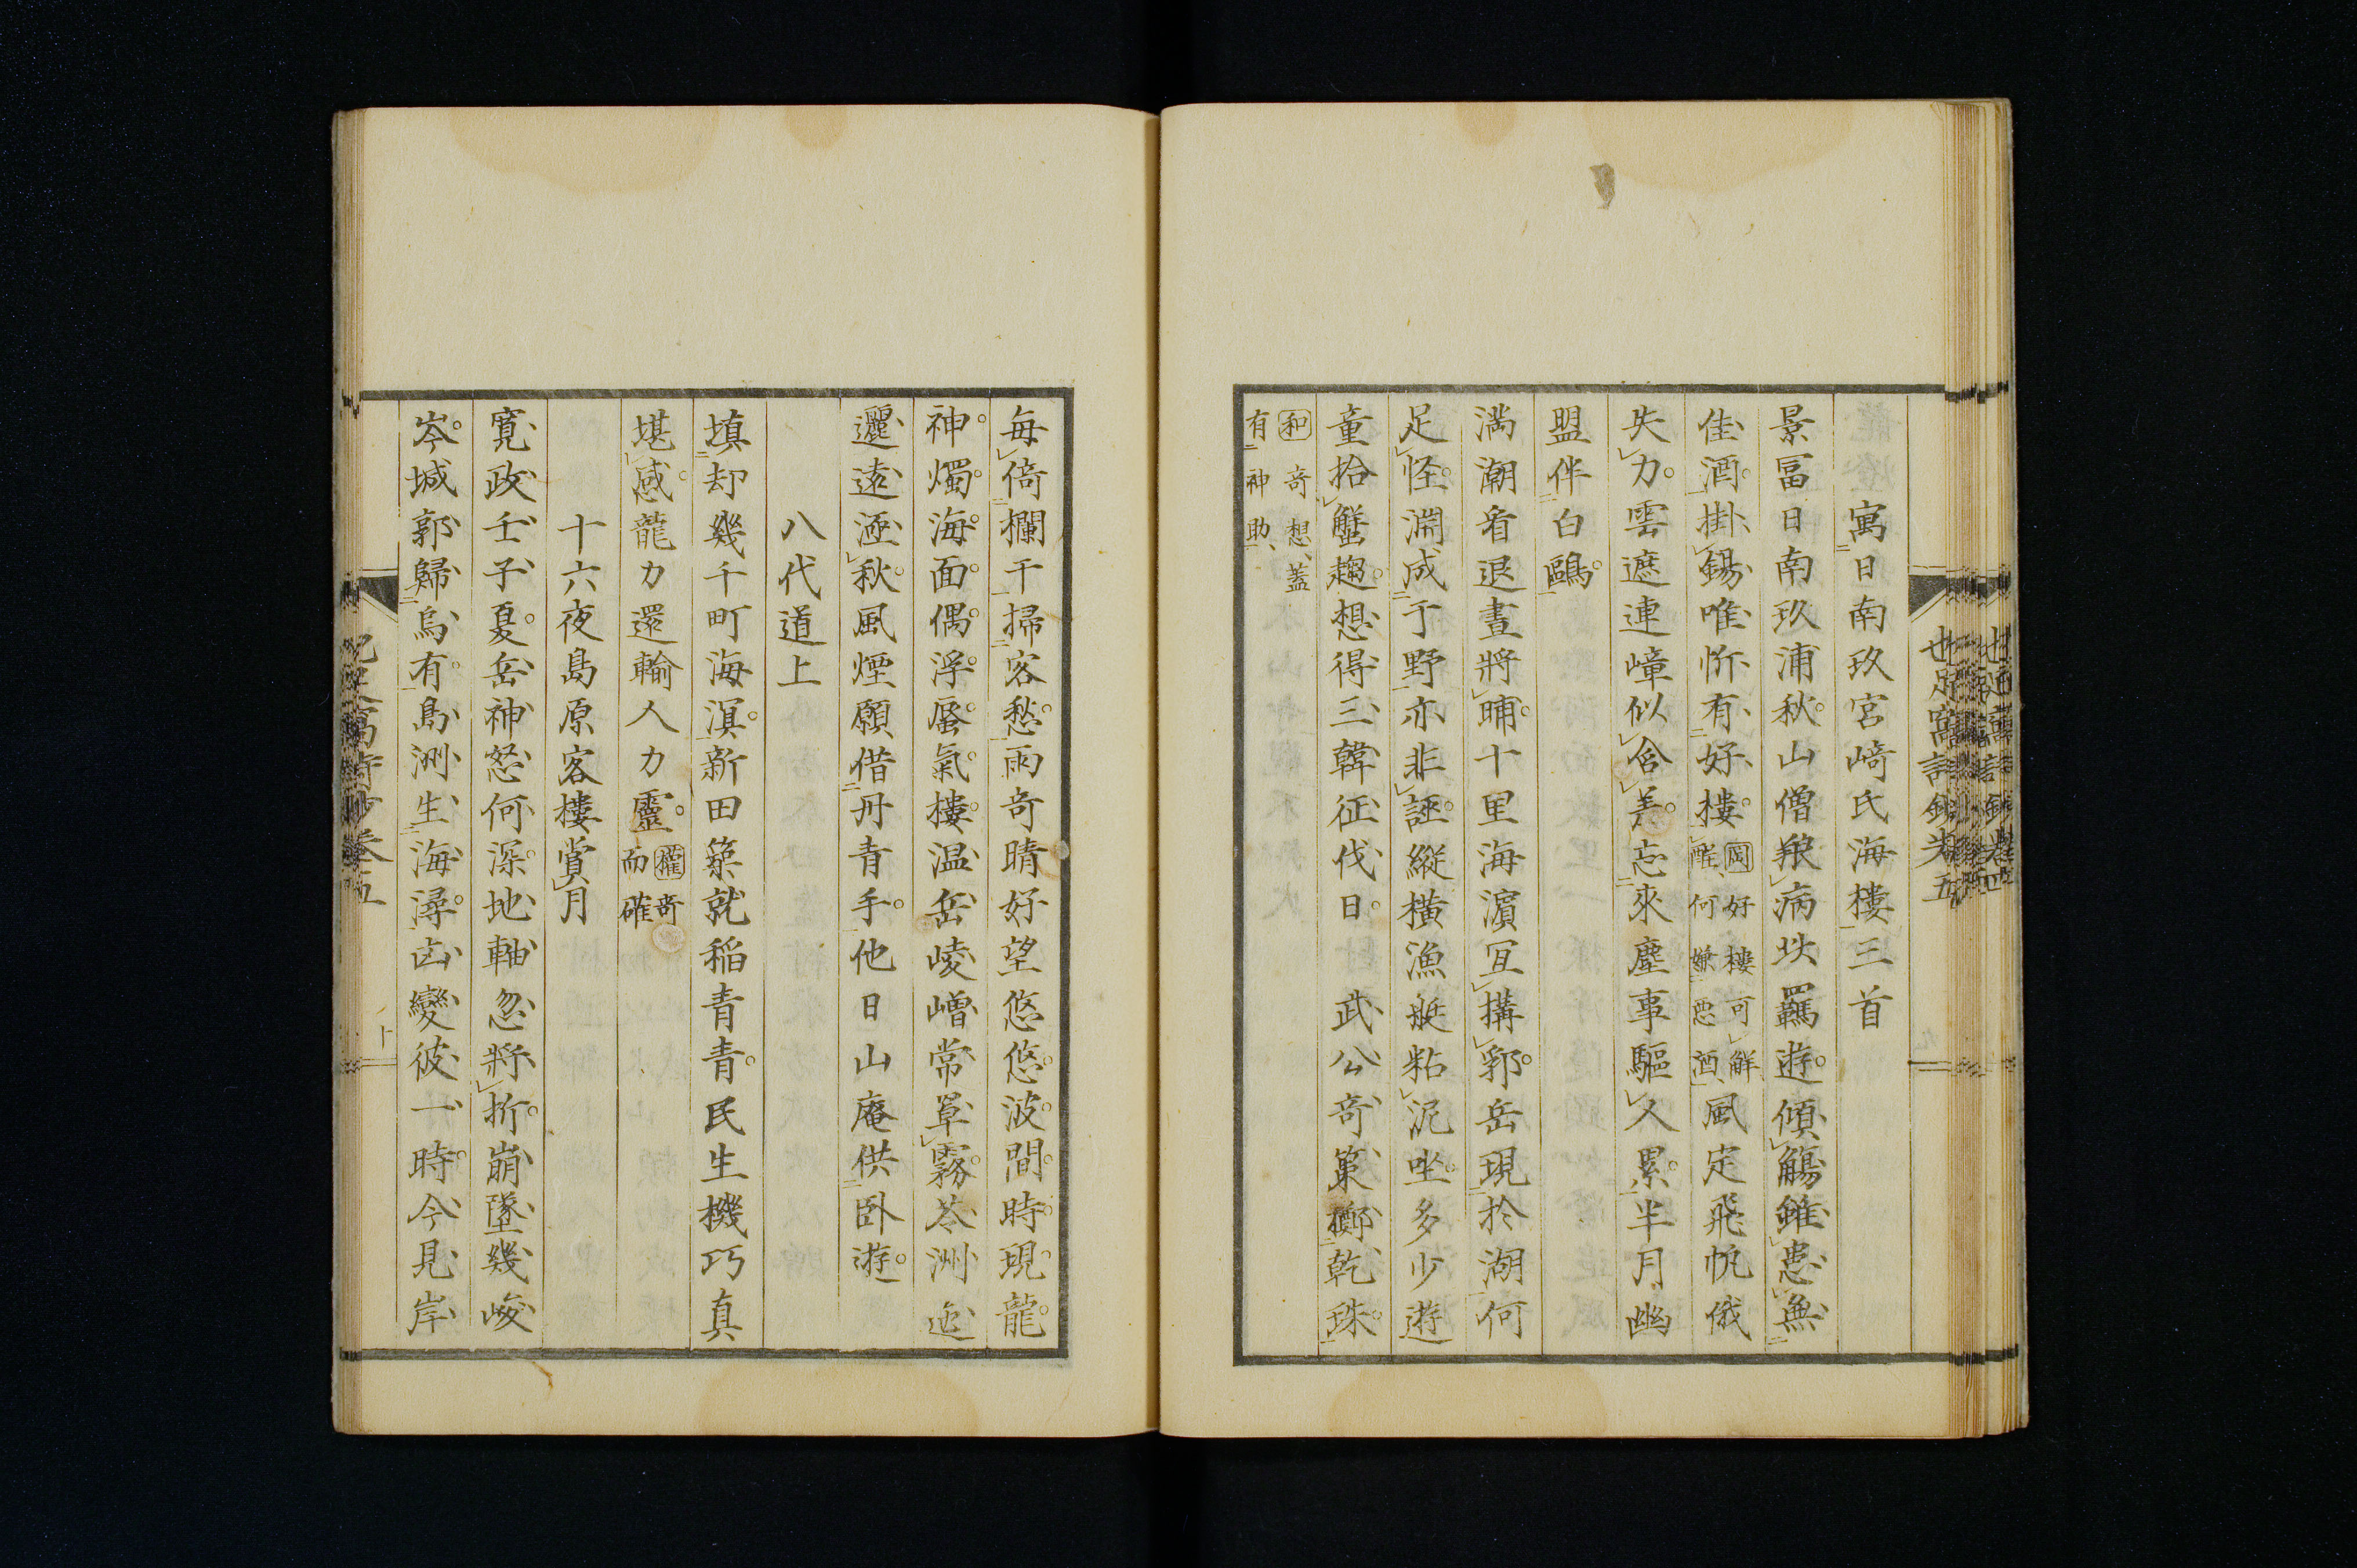 寓日南玖宮崎氏海樓三首
景冨日南玖浦秋山僧艆病攱羈遊傾觴雖患無
佳酒掛錫唯忻有好樓
圀好樓可觧
醒何嫌惡酒
風定飛帆俄
失力雲遮連嶂似含羞忘來塵事驅人累半月幽
盟伴白鷗
満潮看退晝將晡十里海濵冝搆郛岳現於湖何
足怪淵成于野亦非誣縱橫漁艇粘泥坐多少遊
童拾蟹趨想得三韓征伐日武公奇策擲乾珠
和奇想蓋
有神助
也足窩詩鈔卷五
每倚欄干掃客愁雨奇晴好望悠悠波間時現龍
神燭海面偶浮蜃氣樓温岳崚嶒常罩霧苓洲迤
邐遠逕秋風煙願借丹青手他日山庵供卧遊
八代道上
填却幾千町海溟新田築就稻青青民生機巧真
堪感龍力還輸人力靈
權奇
而確
十六夜島原客樓賞月
寬政壬子夏岳神怒何深地軸忽將折崩墜幾峻
岑城郭歸烏有島洲生海潯古變彼一時今見岸
十